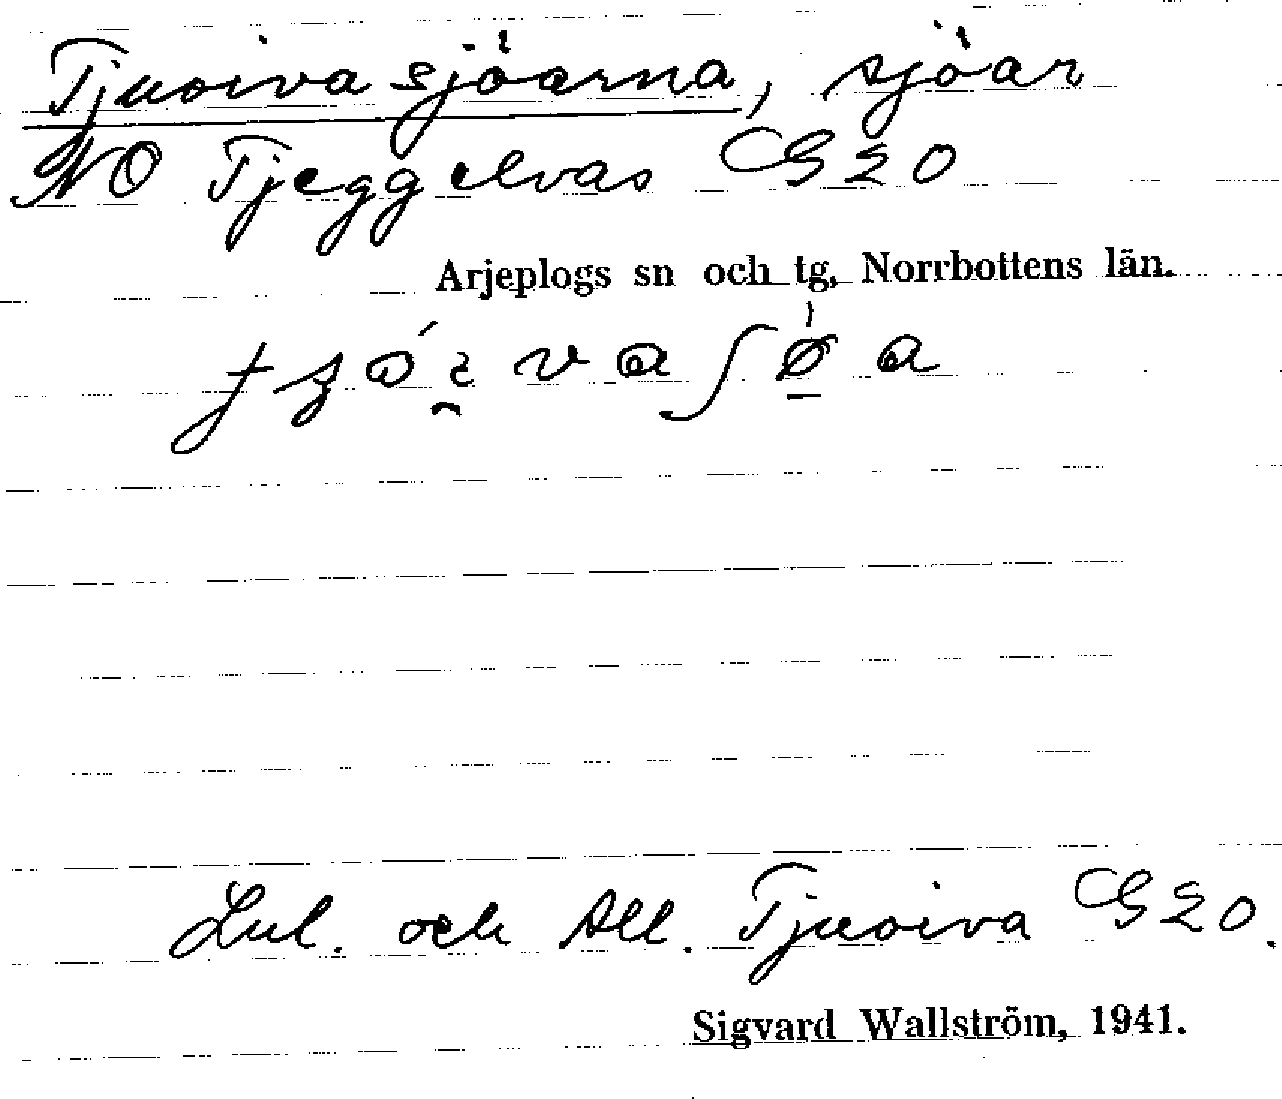 Tjuoivasjöarna, sjöar
NO Tjeggelvas GEO
Arjeplogs sn och tg, Norrbottens län.
Lul. och All. Tjuoiva GEO.
Sigvard Wallström, 1941.